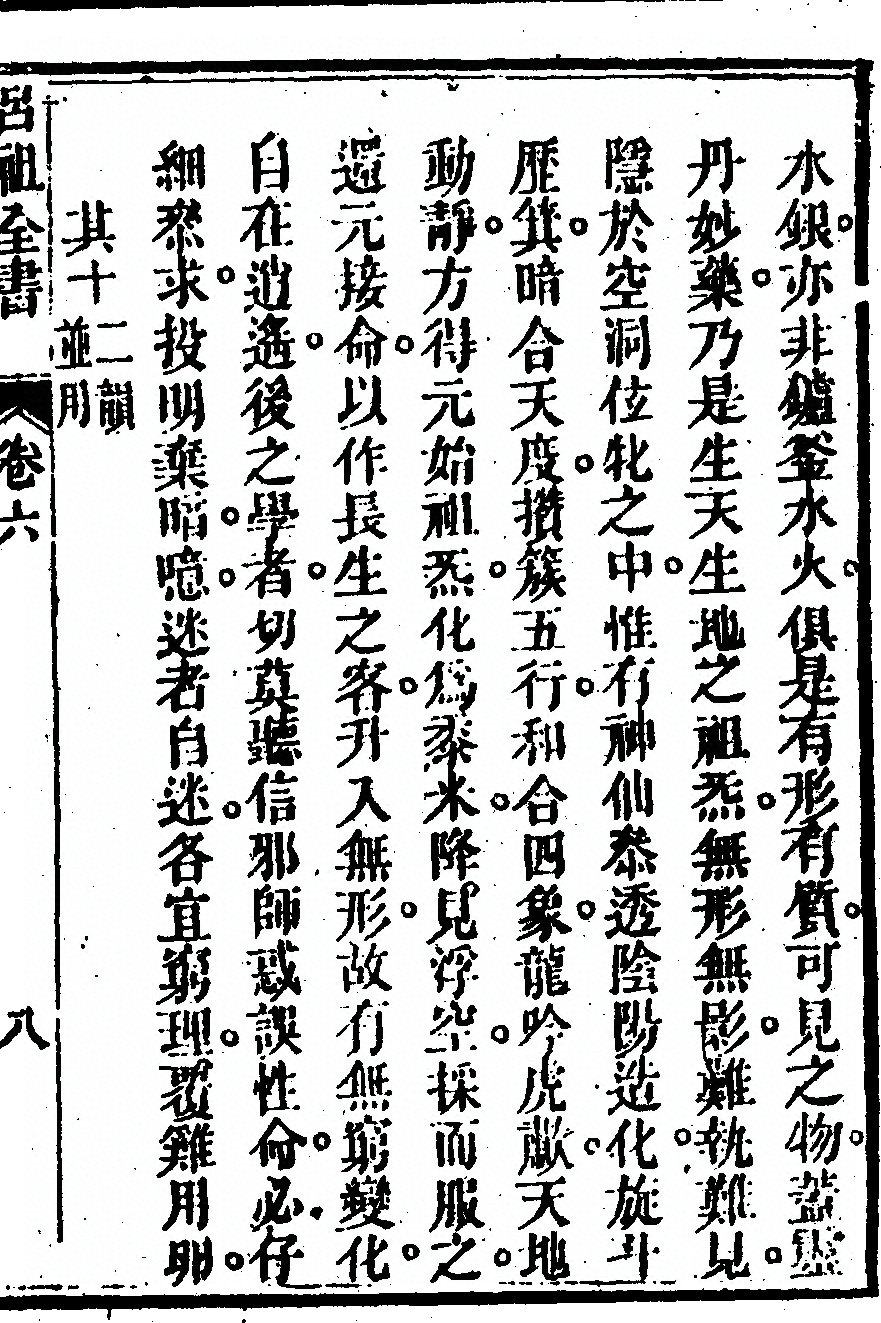 水銀。亦非鑪釜水火。俱是有形有質。可見之物。葢靈
丹妙藥。乃是生天生地之祖炁。無形無影。難執難見。
隱於空洞位牝之中。惟有神仙叅透陰陽造化。旋斗
歷箕。暗合天度。攢簇五行。和合四象。龍吟虎歗。天地
動靜。方得元始祖炁。化爲黍米。降見浮空。採而服之。
還元接命。以作長生之客。升入無形。故有無窮變化。
自在逍遙。後之學者。切莫聽信邪師惑誤性命。必仔
細叅求。投明棄暗。噫。迷者自迷。各宜窮理。覆雞用卵。
其十二韻並用
呂祖全書 卷六 八